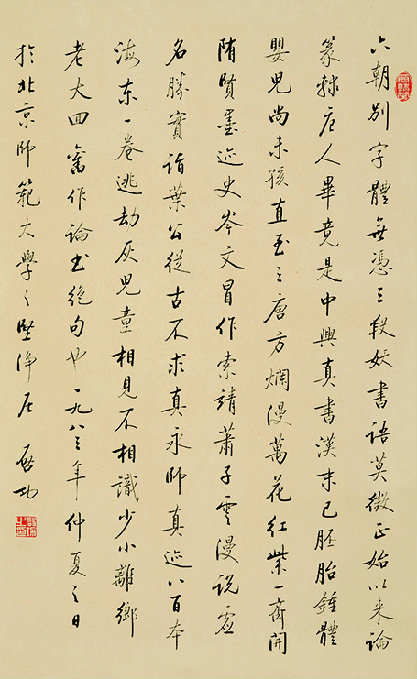 六朝别字體無憑三段妖書語莫徵正始以来論
篆隸唐人畢竟是中興真書漢末已胚胎鍾體
嬰児尚未孩直至三唐方爛漫萬花紅紫一齊開
隋賢墨迹史岑文冒作索靖蕭子雲漫説虚
名勝實詣葉公從古不求真永師真迹八百本
海东一卷逃劫灰児童相見不相識少小離鄉
老大回舊作論书絕句也一九八三年仲夏之日
於北京师範大學之堅净居 啟功